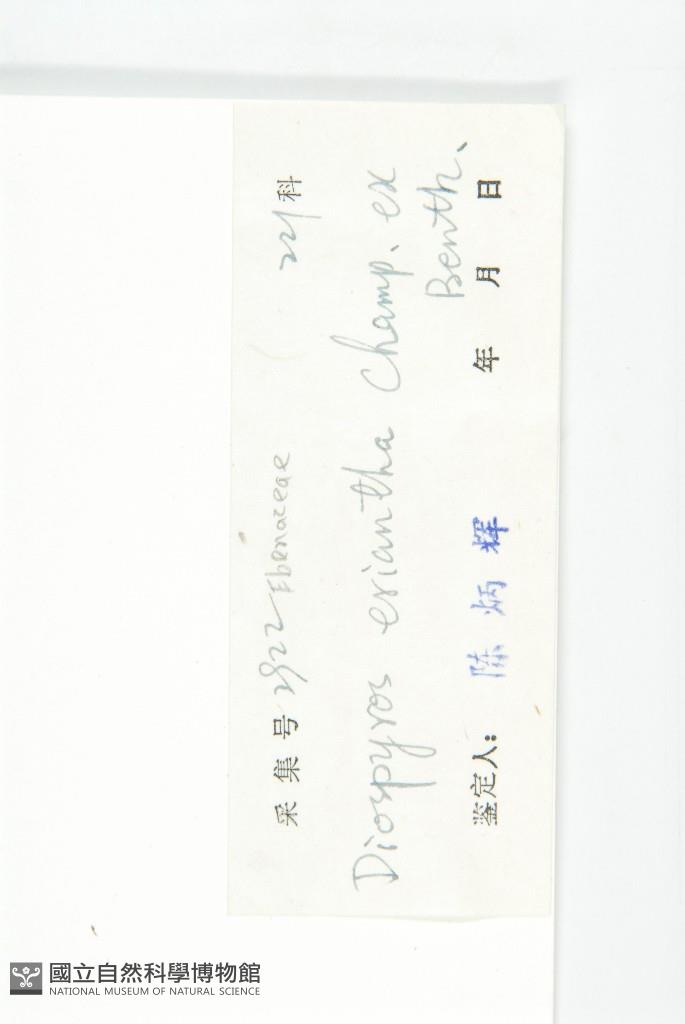 采集号 2922 Ebenaceae 221 科
Diospyros eriantha Champ. ex
Benth.
鉴定人: 陈炳辉 年 月 日
國立自然科學博物館
NATIONAL MUSEUM OF NATURAL SCIENCE